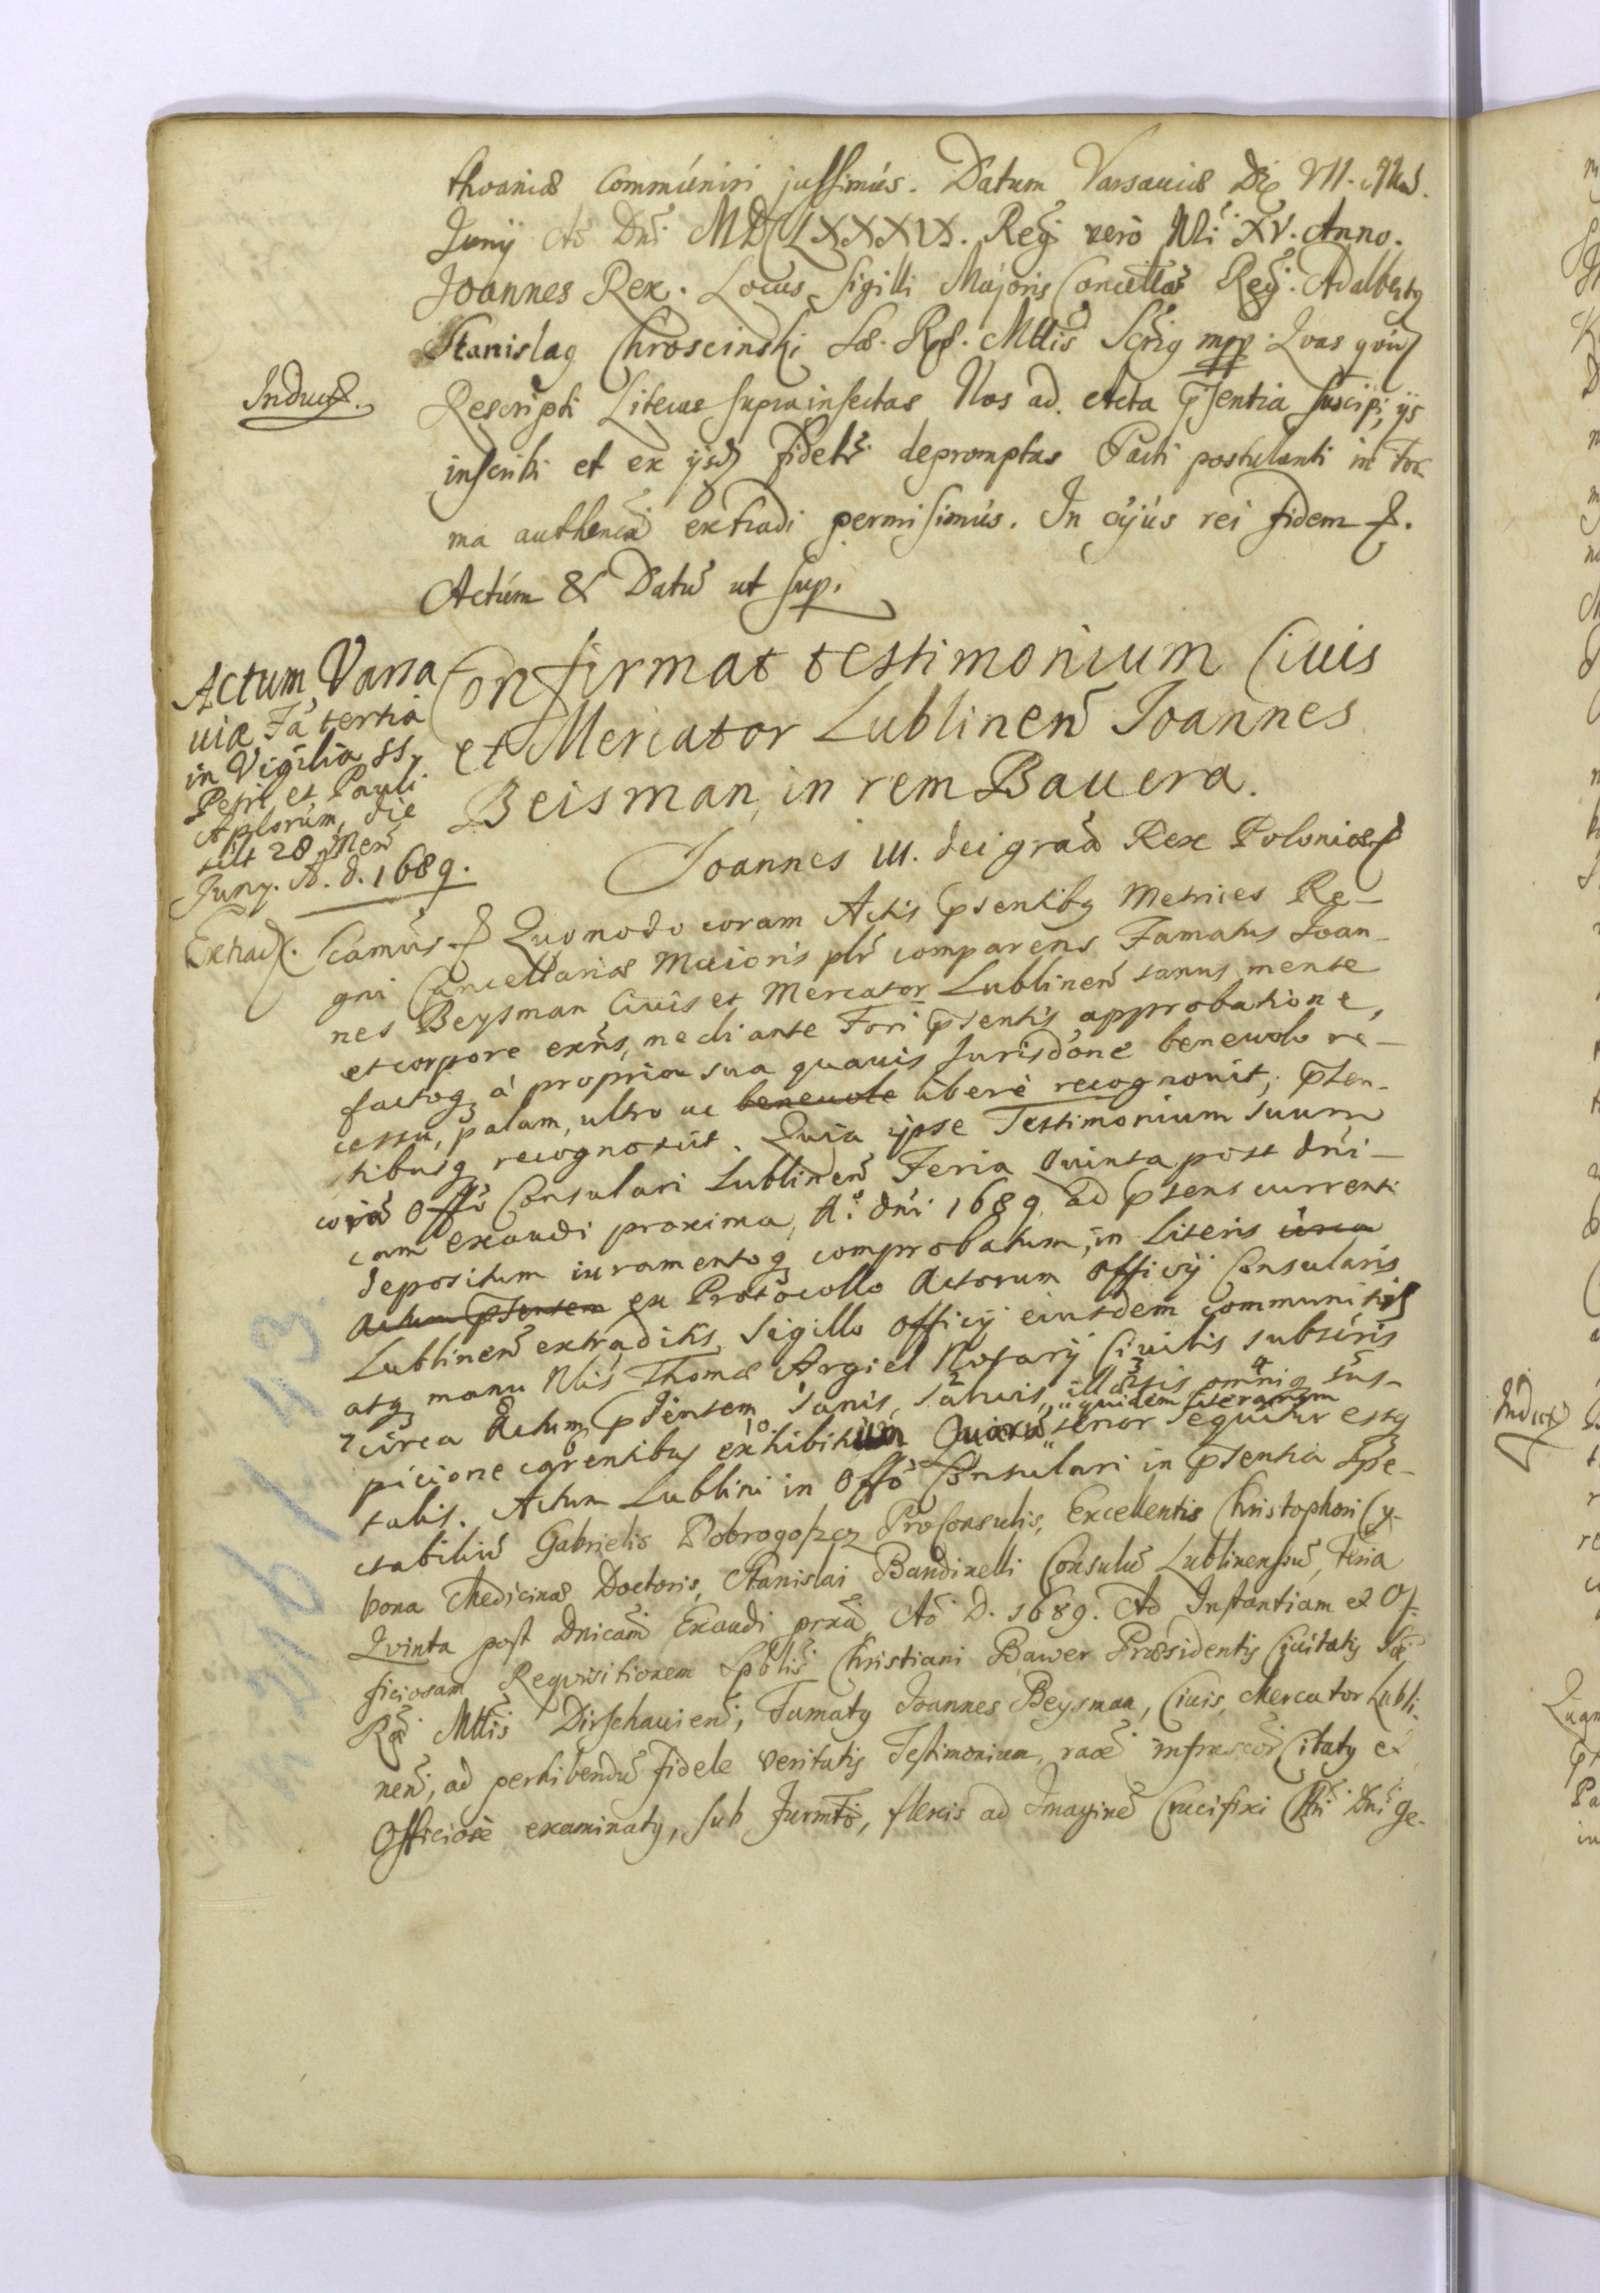 thuaniæ Commúniri jussimús. Datum Varsaviæ Die VII. Mens.
Junÿ Aō Dni MDCLXXXIX. Regi verò Nri XV. Anno.
Joannes Rex. Locus Sigilli Majoris Cancellae Regi. Adalbertg
Stanislag Chroscinski Sæ. Ræ. Mttis Scrig mpp. Qvas qvid
Inducta.
Rescripti Literas suprainsertas Nos ad Acta pntia suscipi, ÿs
inscribi et ex ÿsd fidelr depromptas Parti postulanti in for
ma authenca extradi permisimús. In cújús rei fidem &.
Actúm & Datū ut sup.
Actum Varsa
uiæ Fa tertia
in Vigilia SS.
Petri et Pauli
Aplorúm, die
scilt 28 Men
Juny. A. d. 1689.
Confirmat testimonium Ciuis
et Mercator Lublinen Joannes
Beisman, in rem Bauera.
Joannes III. dei gratia Rex Poloniæ &
Extrad. Scamús & Quomodo coram Actis pntibg Metrices Re-
gni Cancellariæ Maioris plr comparens Famatus Joan-
nes Beysman Ciuis et Mercator Lublinen sanus mente
et corpore exns, mediante Fori pntis approbatione,
factog à propria sua quauis Jurisdone benevolo re-
cessu, palam, ultro ac benevole liberè recognouit, pnten-
tibusg recognoscit. Quia ipse Testimonium suum
corā Offo Consulari Lublinen Feria Quinta post dni-
cam exaudi proxima, A° dni 1689 ad ptens currenti
depositum iuramentog comprobatum, in Literis circa
Actum ptentem ex Protocollo Actorum Officij Consularis
Lublinen extraditis, Sigillo Officij eiusdem communitis
atg manu Nlis Thomæ Argiel Notarij Ciuilis subscris
circa Actum ptentem sanis, saluis, illæsis omnig sus-
quidem literarum
picione carentibus exhibitum Quarū tenor sequitur estg
talis. Actum Lublini in Offo Consulari in ptentia Spe-
ctabiliū Gabrielis Dobrogoszcz ProConsulis, Excellentis Christophori Cy-
bona Medicinæ Doctoris, Stanislai Bandinelli Consulū Lublinensiū, Feria
Qvinta post Dnicam Exaudi prxa Ao D. 1689. Ad Instantiam et Of-
ficiosam Reqvisitionem Spblis Christiani Bawer Præsidentis Ciuitatis Sæ
Ræ Mttis Dirschauien, Famatg Joannes Beysman, Ciuis, Mercator Lubli-
nen, ad perhibendū fidele veritatis Testimonium, raoe infrascr Citatg et
Officiosè examinatg, sub Jurmto, flexis ad Imaginē Crucifixi Chri Dni ge-